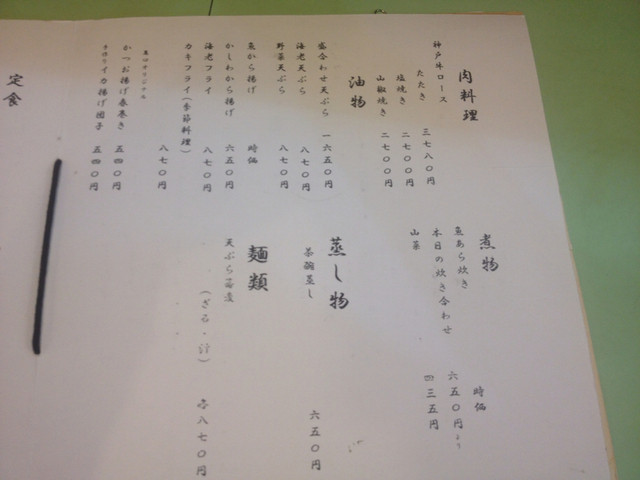 肉料理
神戸牛ロース
たたき 三七八〇円
塩焼き 二七〇〇円
山椒焼き 二七〇〇円
油物
盛合わせ天ぷら 一六五〇円
海老天ぷら 八七〇円
野菜天ぷら 八七〇円
魚から揚げ 時価
かしわから揚げ 六五〇円
海老フライ 八七〇円
カキフライ(季節料理) 八七〇円
オリジナル
かつお揚げ春巻き 五四〇円
手作りイカ揚げ団子 五四〇円
煮物
時価
魚あら炊き 六五〇円より
本日の炊き合わせ 四三五円
山菜
蒸し物
茶碗蒸し 六五〇円
麺類
天ぷら蕎麦
(ざる・汁) 八七〇円
定食